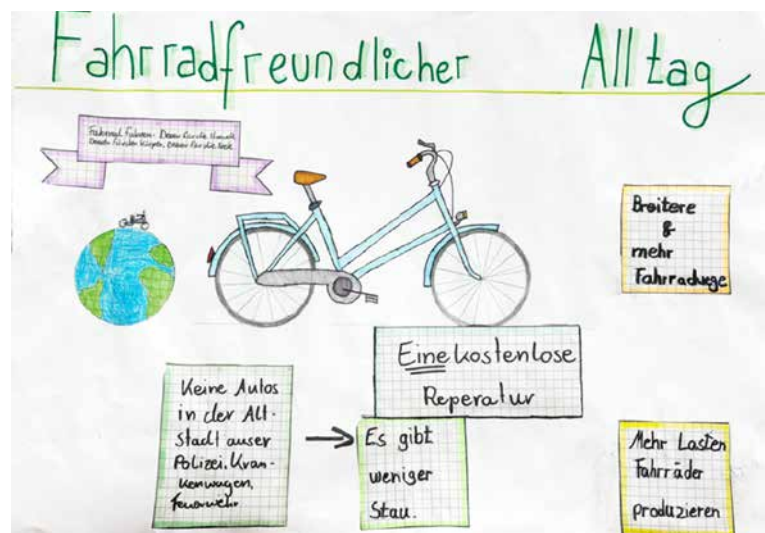 Fahrradfreundlicher Alltag
Fahrrad Fahren - Besser für die Umwelt
Besser für den Körper, Besser für die Seele
Breitere
&
mehr
Fahrradwege
Eine kostenlose
Reperatur
Keine Autos
in der Alt-
stadt auser
Polizei, Kran-
kenwagen,
Feuerwehr
Es gibt
weniger
Stau.
Mehr Lasten
Fahrräder
produzieren